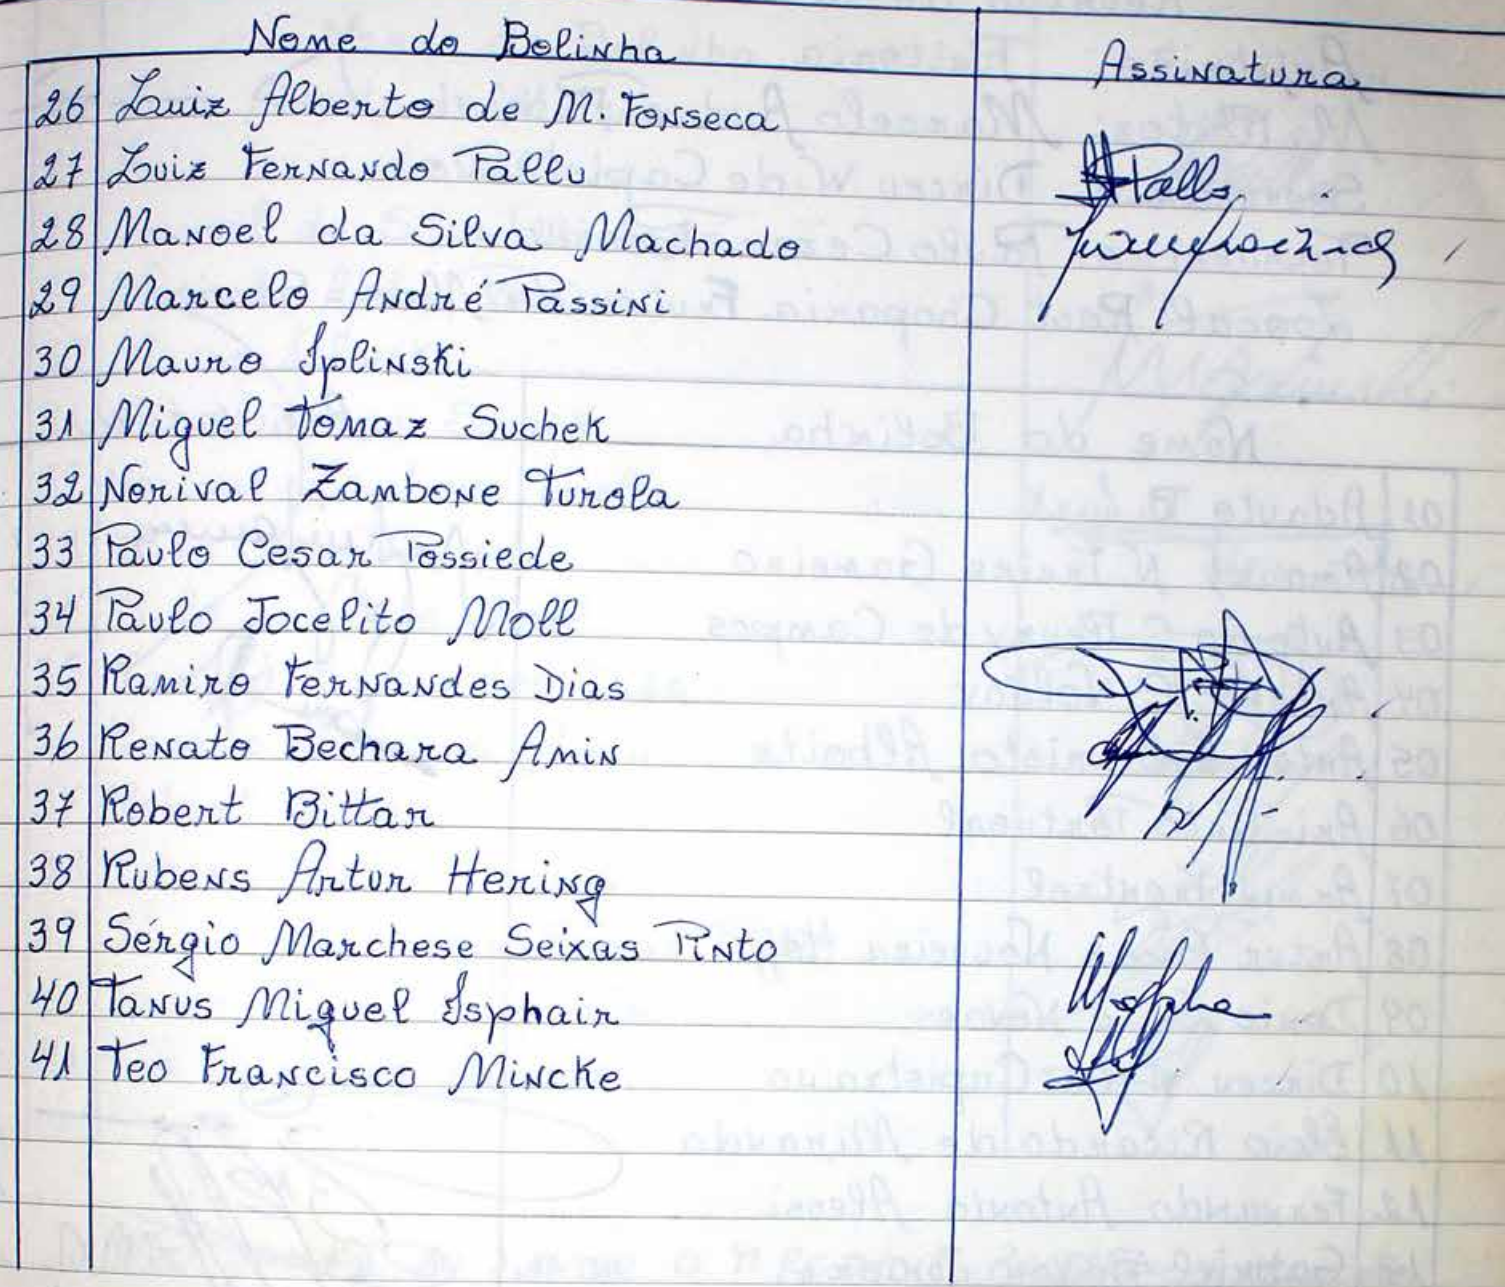 Nome do Bolinha Assinatura
26 Luiz Alberto de M. Fonseca
27 Luiz Fernando Pallu
28 Manoel da Silva Machado
29 Marcelo André Passini
30 Mauro Splinski
31 Miguel Tomaz Suchek
32 Norival Zambone Turola
33 Paulo Cesar Possiede
34 Paulo Jocelito Moll
35 Ramiro Fernandes Dias
36 Renato Bechara Amin
37 Robert Bittar
38 Rubens Artur Hering
39 Sérgio Marchese Seixas Pinto
40 Tanus Miguel Isphair
41 Teo Francisco Mincke